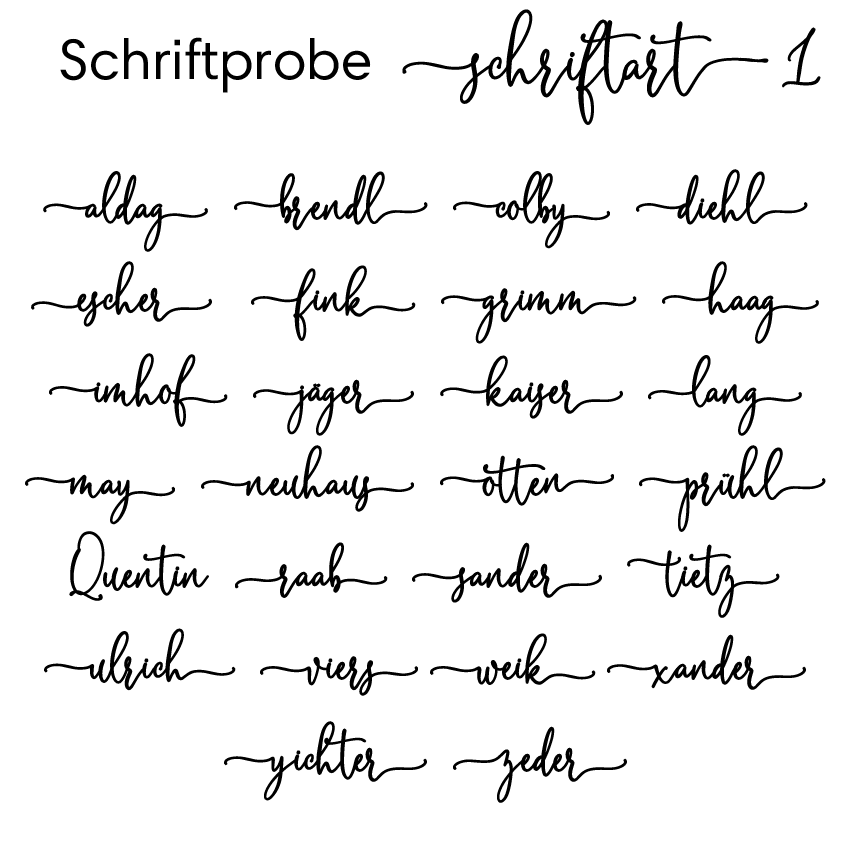 Schriftprobe schriftart 1
aldag brendl colby diehl
escher fink grimm haag
imhof jäger kaiser lang
may neuhaus otten prühl
Quentin raab sander tietz
ulrich viers weik xander
yichter zeder